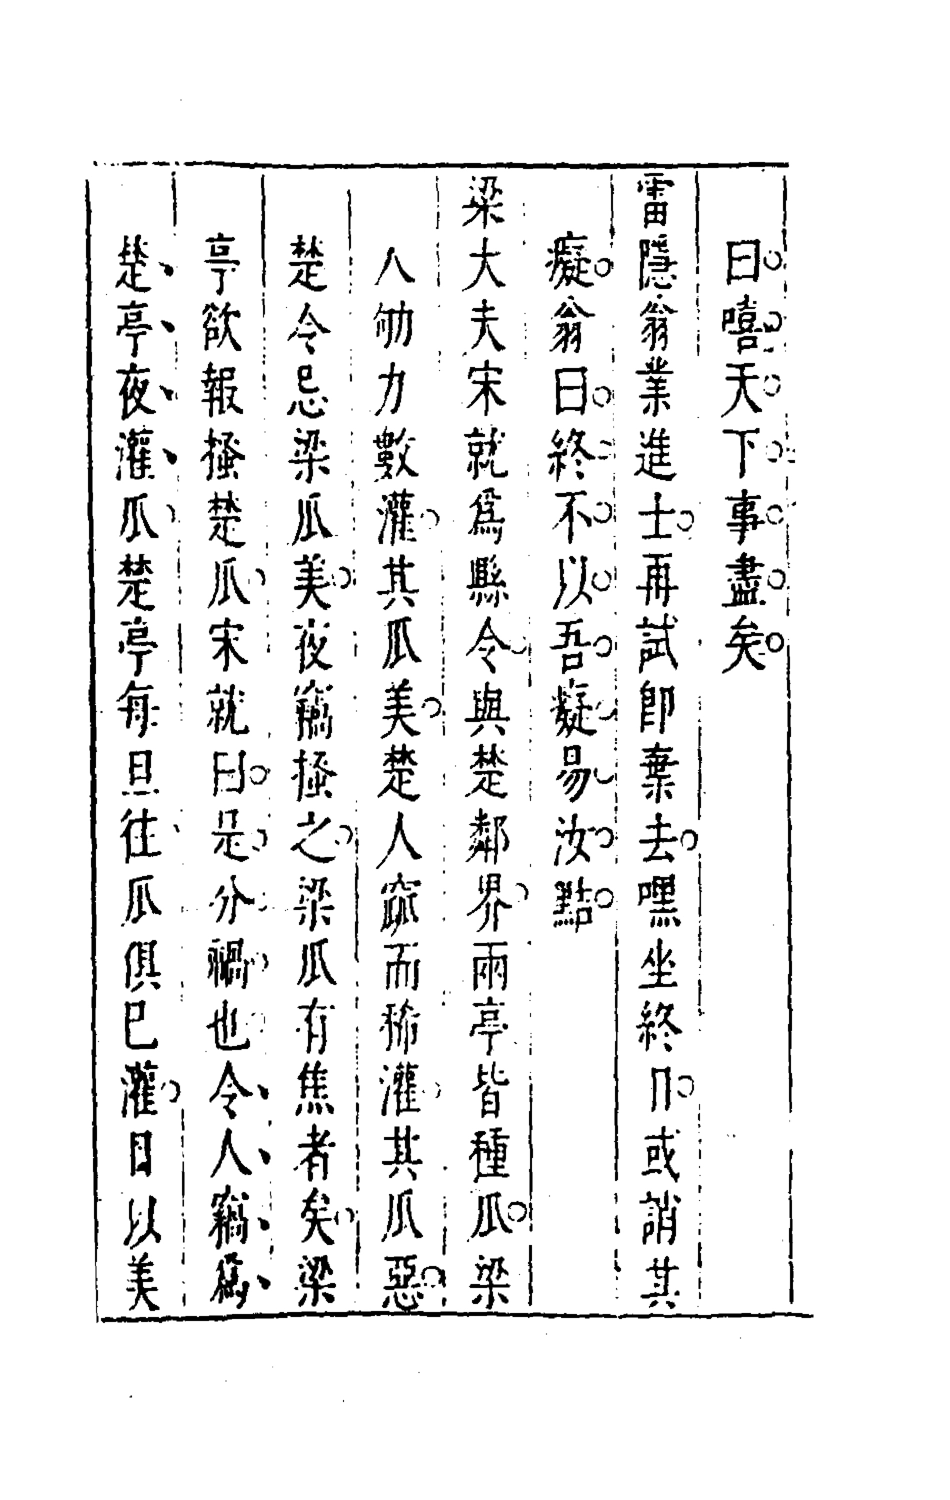 曰嘻天下事盡矣
雷隱翁業進士再試卽棄去嘿坐終日或誚其
癡翁曰終不以吾癡易汝黠
梁大夫宋就爲縣令與楚鄰界兩亭皆種瓜梁
人劬力數灌其瓜美楚人窳而稀灌其瓜惡
楚令忌梁瓜美夜竊搔之梁瓜有焦者矣梁
亭欲報搔楚瓜宋就曰是分禍也令人竊爲
楚亭夜灌瓜楚亭每旦往瓜俱已灌日以美